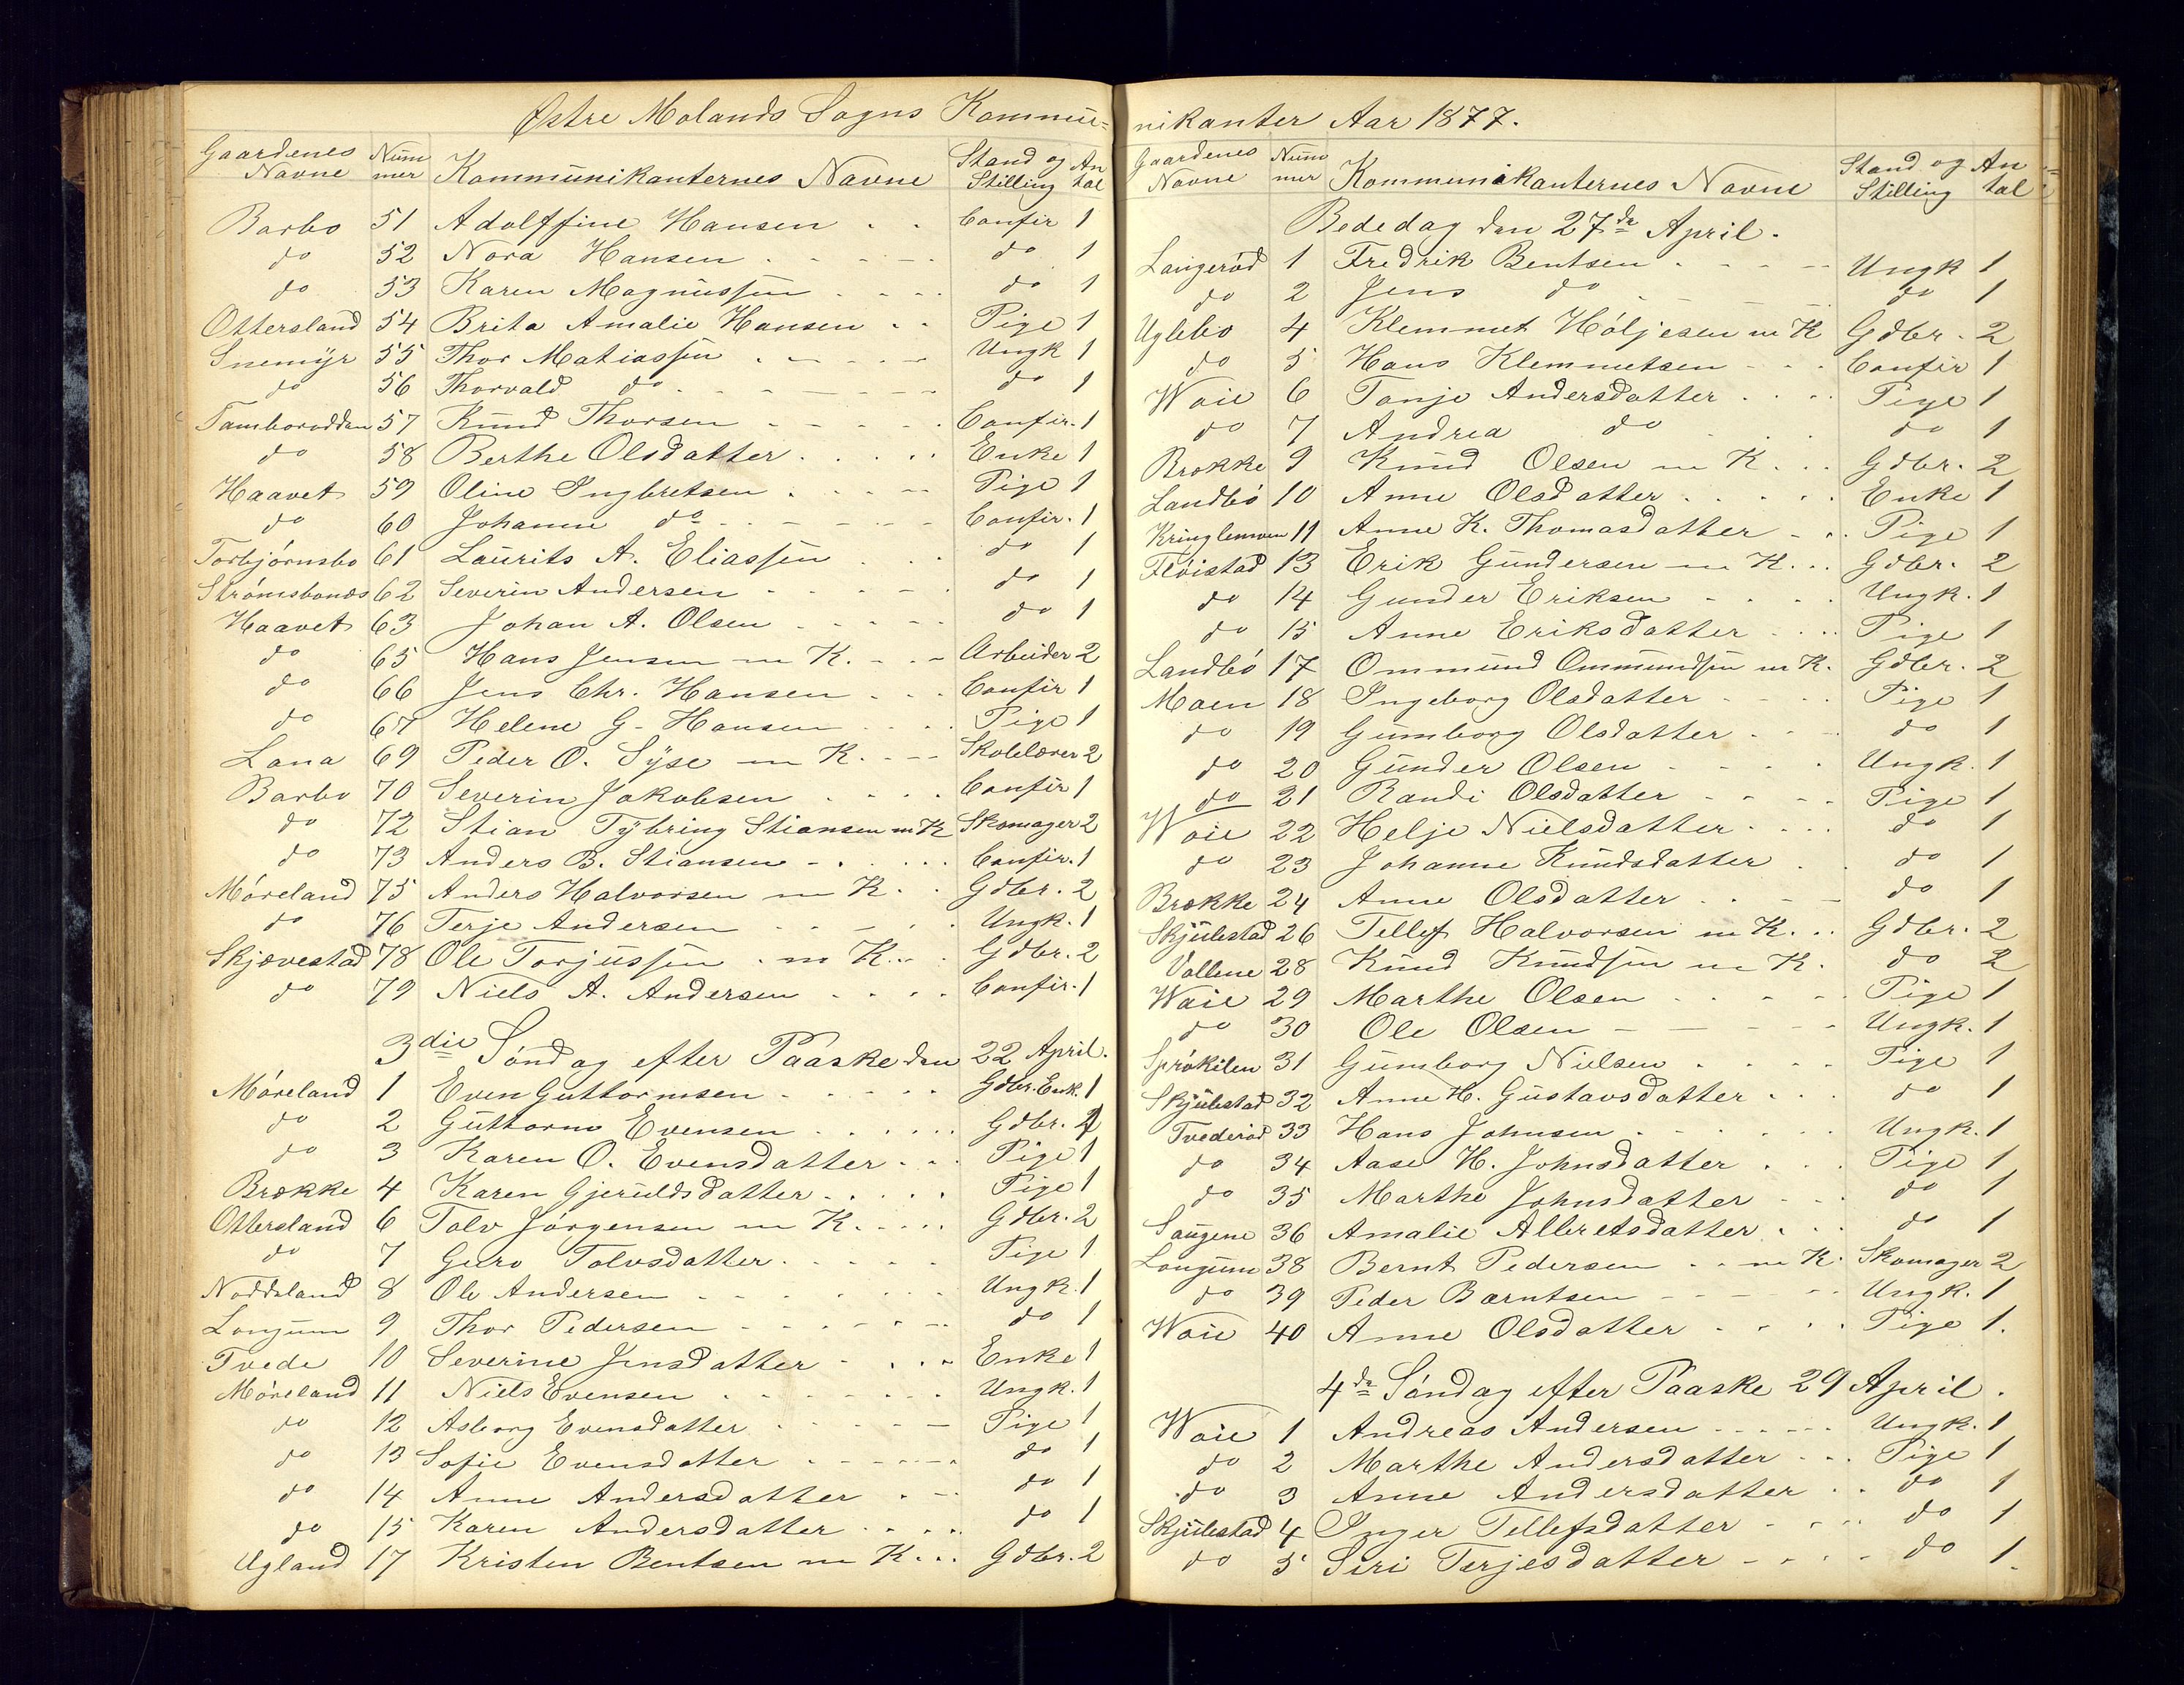 Østre Molands Sogns Kommu=
Gaardenes Navne Nummer Kommunikanternes Navne Stand og Stilling Antal
Barbo 51 Adolffine Hansen . . Confir 1
do 52 Nora Hansen . . . . . do 1
do 53 Karen Magnussen . . . . do 1
Ottersland 54 Brita Amalie Hansen . . Pige 1
Snemyr 55 Thor Matiassen . . . . . Ungk 1
do 56 Thorvald do . . . . . . do 1
Tamborodden 57 Knud Thorsen . . . . . Confir. 1
do 58 Berthe Olsdatter . . . . . Enke 1
Haavet 59 Oline Ingbretsen . . . . . Pige 1
do 60 Johanne do . . . . . . Confir. 1
Torbjørnsbo 61 Laurits A. Eliassen . . do 1
Strømsbonæs 62 Severin Andersen . . . . . do 1
Haavet 63 Johan A. Olsen . . . . . do 1
do 65 Hans Jensen m K. . . . Arbeider 2
do 66 Jens Chr. Hansen . . . Confir 1
do 67 Helene G. Hansen . . . . Pige 1
Lona 69 Peder O. Syse m K. . . . Skolelærer 2
Barbo 70 Severin Jakobsen . . . . Confir 1
do 72 Stian Tybring Stiansen m K Skomager 2
do 73 Anders B. Stiansen . . . . . Confir. 1
Møreland 75 Anders Halvorsen m K. . Gdbr. 2
do 76 Terje Andersen . . . . . Ungk. 1
Skjævestad 78 Ole Torjussen . m K. . . Gdbr. 2
do 79 Niels A. Andersen . . . . Confir. 1
3die Søndag efter Paaske den 22 April.
Møreland 1 Even Guttormsen . . . . . Gdbr. Enk. 1
do 2 Guttorm Evensen . . . . . . Gdbr. 1
do 3 Karen O. Evensdatter . . . Pige 1
Brække 4 Karen Gjeruldsdatter . . . . . Pige 1
Ottersland 6 Tolv Jørgensen m K. . . . . Gdbr. 2
do 7 Guro Tolvsdatter . . . . . Pige 1
Noddeland 8 Ole Andersen . . . . . . . Ungk. 1
Longum 9 Thor Pedersen . . . . . . . do 1
Tvede 10 Severine Jensdatter . . . . Enke 1
Møreland 11 Niels Evensen . . . . . . . Ungk. 1
do 12 Asborg Evensdatter . . . . . . Pige 1
do 13 Sofie Evensdatter . . . . . . do 1
do 14 Anne Andersdatter . . . do 1
do 15 Karen Andersdatter . . . . . do 1
Ugland 17 Kristen Bentsen m K. . . Gdbr. 2
nikanter Aar 1877.
Gaardenes Navne Nummer Kommunikanternes Navne Stand og Stilling Antal
Bededag den 27de April.
Langerød 1 Fredrik Bentsen . . . . . Ungk 1
do 2 Jens do . . . . do 1
Uglebo 4 Klemmet Høljesen m K Gdbr. 2
do 5 Hans Klemmetsen . . . Confir 1
Woie 6 Tonje Andersdatter . . . . Pige 1
do 7 Andrea do . . . do 1
Brække 9 Knud Olsen m K. . . Gdbr. 2
Landbø 10 Anne Olsdatter . . . . . Enke 1
Kringlemoen 11 Anne K. Thomasdatter . . . Pige 1
Fløistad 13 Erik Gundersen m K. . . Gdbr. 2
do 14 Gunder Eriksen . . . . Ungk. 1
do 15 Anne Eriksdatter . . . . Pige 1
Landbø 17 Ommund Ommundsen m K. Gdbr. 2
Moen 18 Ingeborg Olsdatter . . . . Pige 1
do 19 Gumborg Olsdatter . . . . do 1
do 20 Gunder Olsen . . . . . Ungk. 1
do 21 Randi Olsdatter . . . . Pige 1
Woie 22 Helje Nielsdatter . . . . do 1
do 23 Johanne Knudsdatter . . do 1
Brække 24 Anne Olsdatter . . . . do 1
Skjulestad 26 Tellef Halvorsen m K. . . Gdbr. 2
Vollene 28 Knud Knudsen m K. do 2
Woie 29 Marthe Olsen . . . . . Pige 1
do 30 Ole Olsen . . . . . Ungk. 1
Sprøkilen 31 Gumborg Nielsen . . . . Pige 1
Skjulestad 32 Anne H. Gustavsdatter . . . do 1
Tvederød 33 Hans Johnsen . . . . . . Ungk. 1
do 34 Aase H. Johnsdatter . . . Pige 1
do 35 Marthe Johnsdatter . . . do 1
Saugene 36 Amalie Albretsdatter . . . do 1
Longum 38 Bernt Pedersen . . m K. Skomager 2
do 39 Peder Berntsen . . . . . Ungk. 1
Woie 40 Anne Olsdatter . . . . Pige 1.
4de Søndag efter Paaske 29 April.
Woie 1 Andreas Andersen . . . . . Ungk. 1
do 2 Marthe Andersdatter . . . Pige 1
do 3 Anne Andersdatter . . do 1
Skjulestad 4 Inger Tellefsdatter . . . . do 1
do 5 Siri Terjesdatter . . . . . do 1.